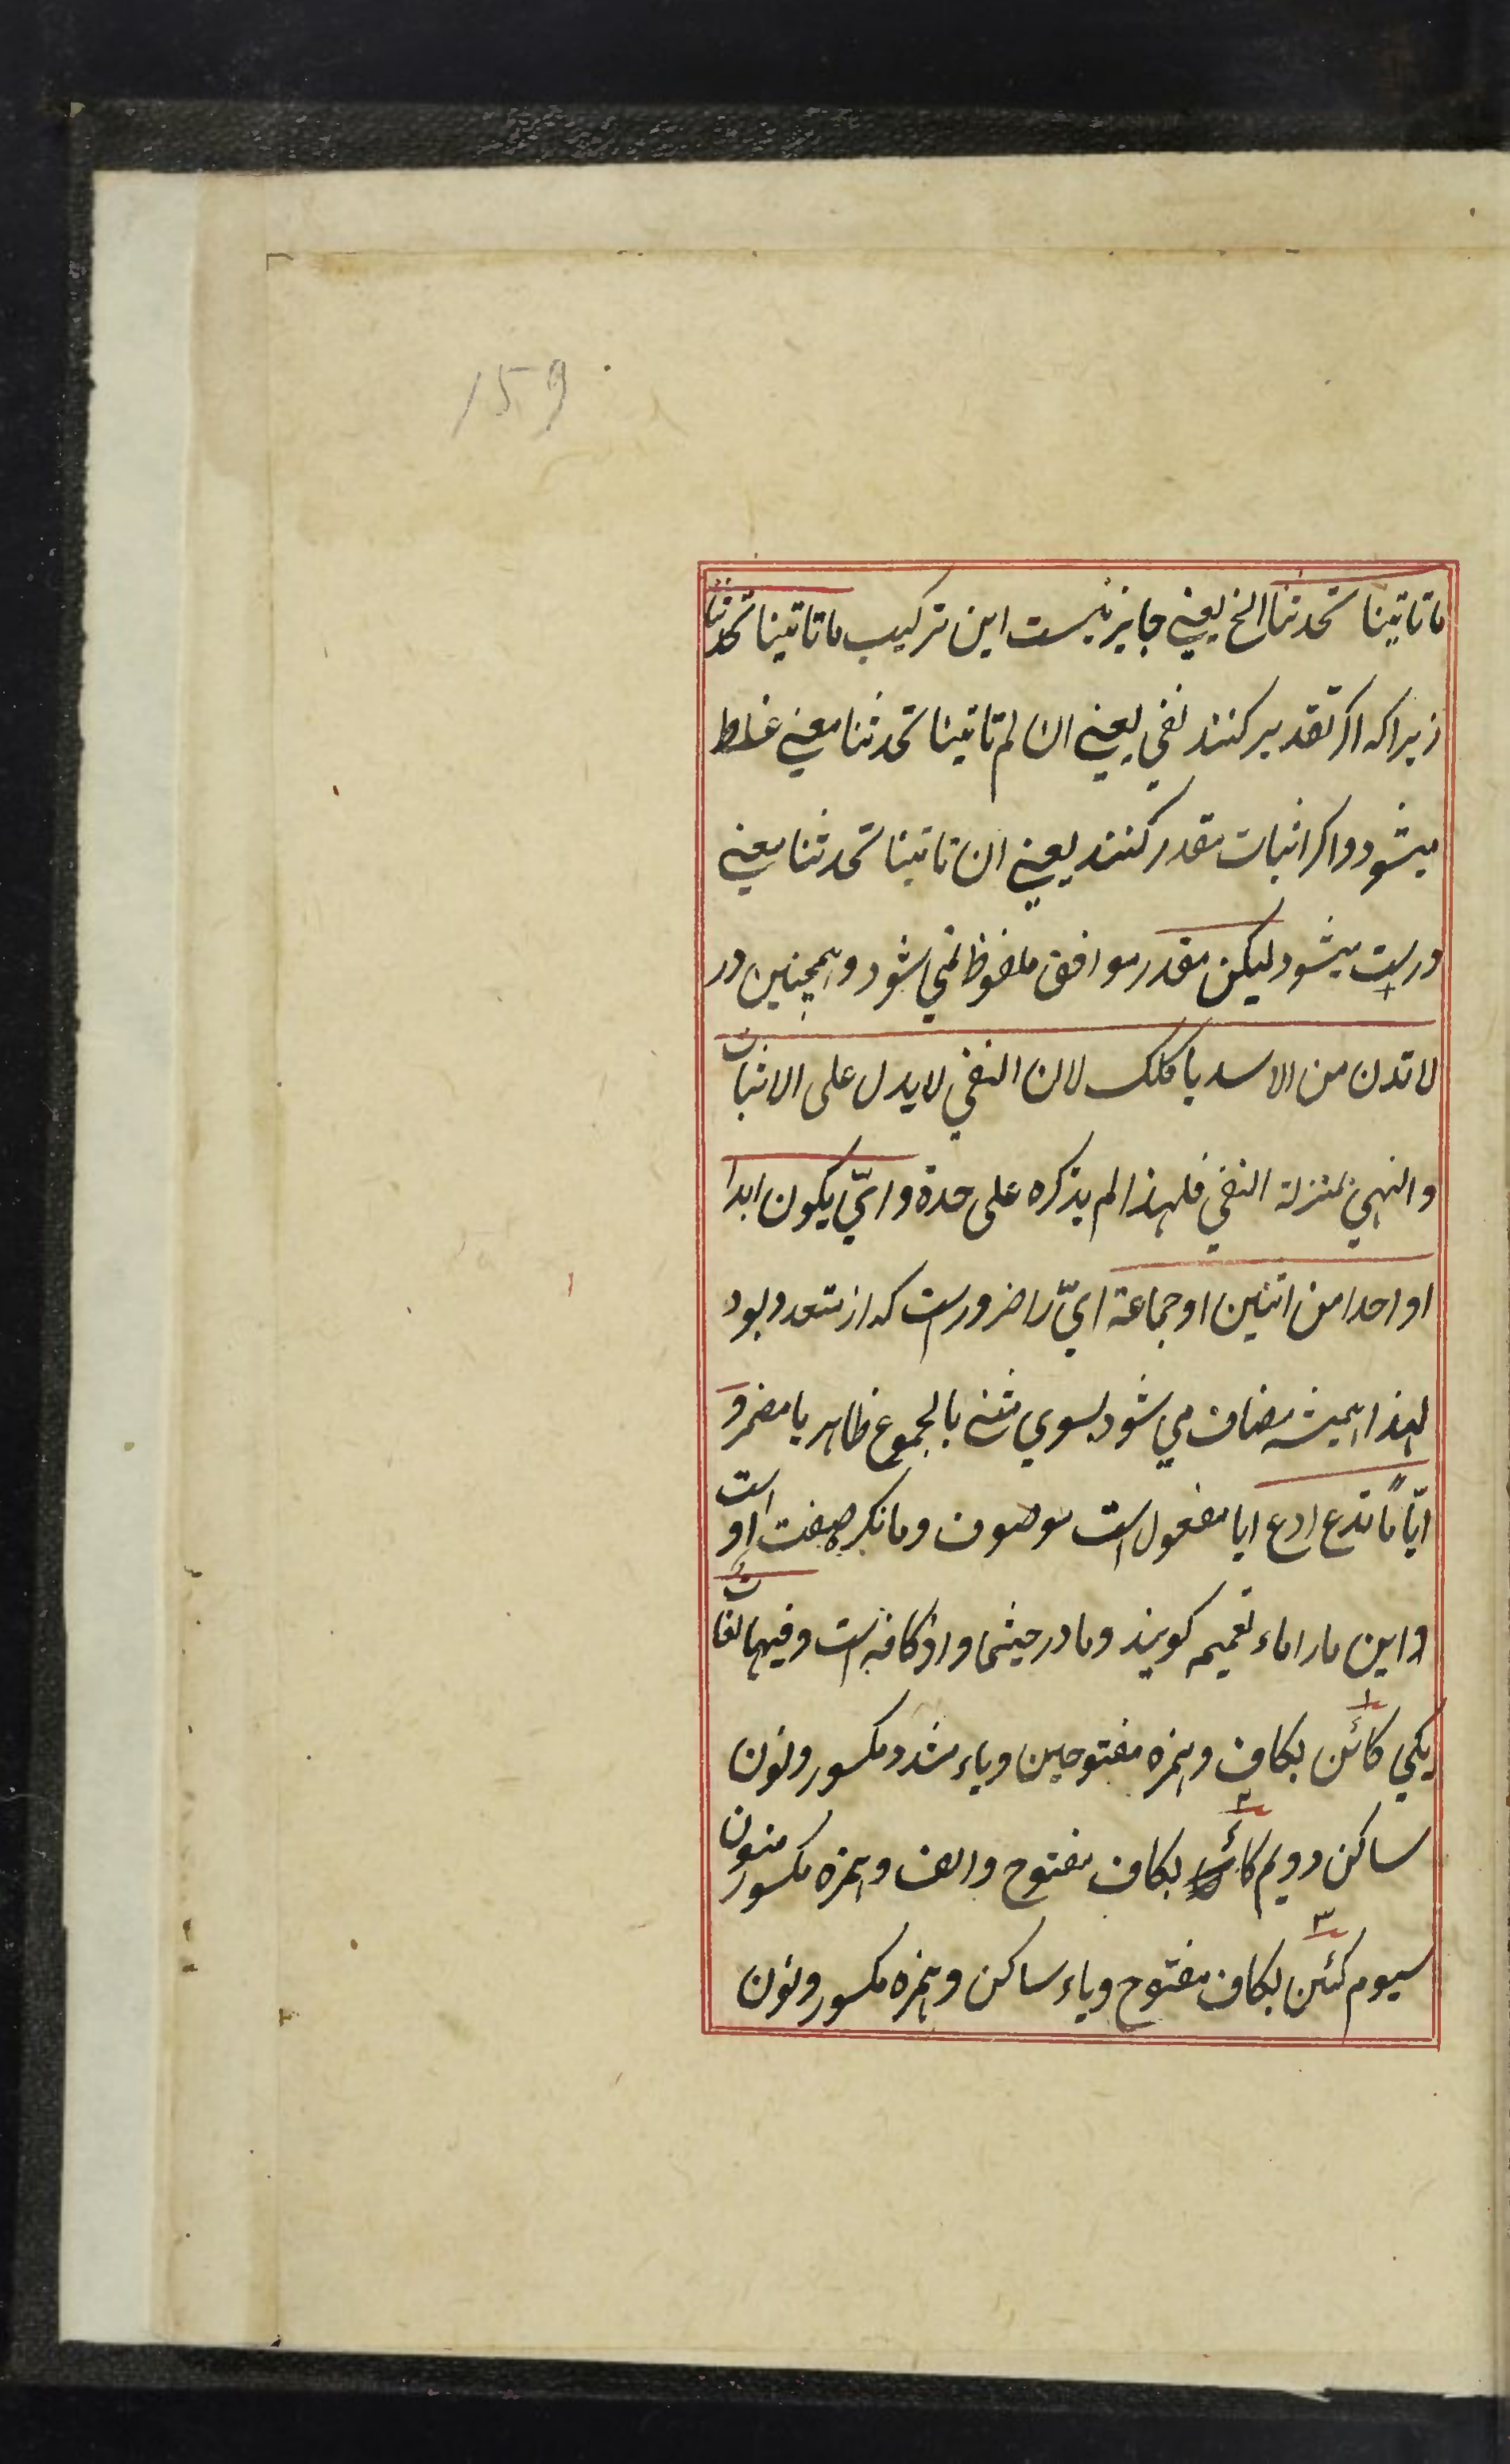 159
ماتاتینا تحدثنا الخ یعنی جایز نیست این ترکیب ماتاتینا تحدثنا
زیراکه اکر تقدیر کنند نفی یعنی ان لم تاتینا تحدثنا معنی غلط
میشود واکر اثبات مقدر کنند یعنی ان تاتینا تحدثنا معنی
درست میشود لیکن مقدر موافق ملفوظ نمی شود و همچنین در
لا تدن من الاسد یاکلک لان النفی لا یدل علی الاثبات
والنهی بمنزلة النفی فلهذا لم یذکره علی حدة وایّ یکون ابدا
او احدا من اثنین او جماعة ایّ را ضرورست که از متعدد بود
لهذا همیشه مضاف می شود بسوی مثنی یا مجموع ظاهر یا مضمر و
ایّاً ما تدع ادع ایا مفعول است موصوف وما نکره صفت او است
واین مارا ماء تعمیم کویند وما در حیثما واذ کافه است وفیها لغات
یکی کائن ۱ بکاف وهمزه مفتوحین ویاء مشدد مکسور ونون
ساکن دویم ۲ بکاف مفتوح والف وهمزه مکسور منون
سیوم کیئن ۳ بکاف مفتوح ویاء ساکن وهمزه مکسور ونون